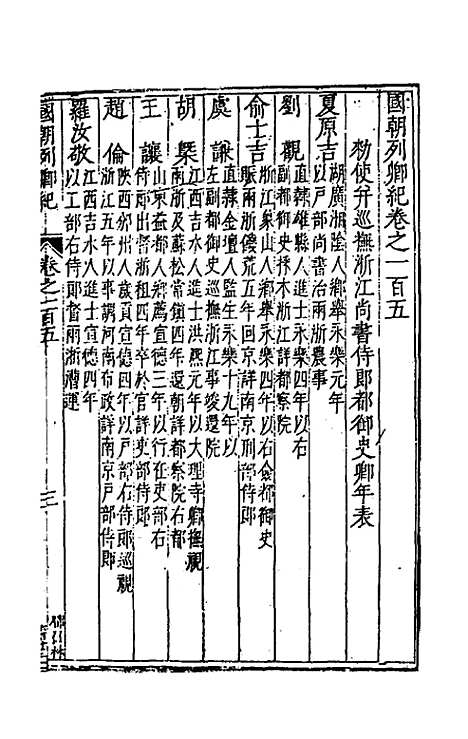 國朝列卿紀卷之一百五
勑使弁巡撫浙江尚書侍郎都御史卿年表
夏原吉
湖廣湘陰人鄉舉永樂元年
以户部尚書治兩浙農事
劉觀
直隸雄縣人進士永樂四年以右
副都御史採木浙江詳都察院
俞士吉
浙江象山人鄉舉永樂四年以右僉都御史
賑兩浙饑荒五年回京詳南京刑部侍郎
虞謙
直隸金壇人監生永樂十九年以
左副都御史巡撫浙江事竣還院
胡槩
江西吉水人進士洪熙元年以大理寺卿撫視
兩浙及蘇松常鎮四年還朝詳都察院右都
王讓
山東益都人鄉薦宣德三年以行在吏部右
侍郎出督浙租四年卒於官詳吏部侍郎
趙倫
陝西邠州人歲貢宣德四年以户部右侍郎巡視
浙江五年以事調河南布政詳南京户部侍郎
羅汝敬
江西吉水人進士宣德四年
以工部右侍郎督兩浙漕運
國朝列卿紀
卷之一百五